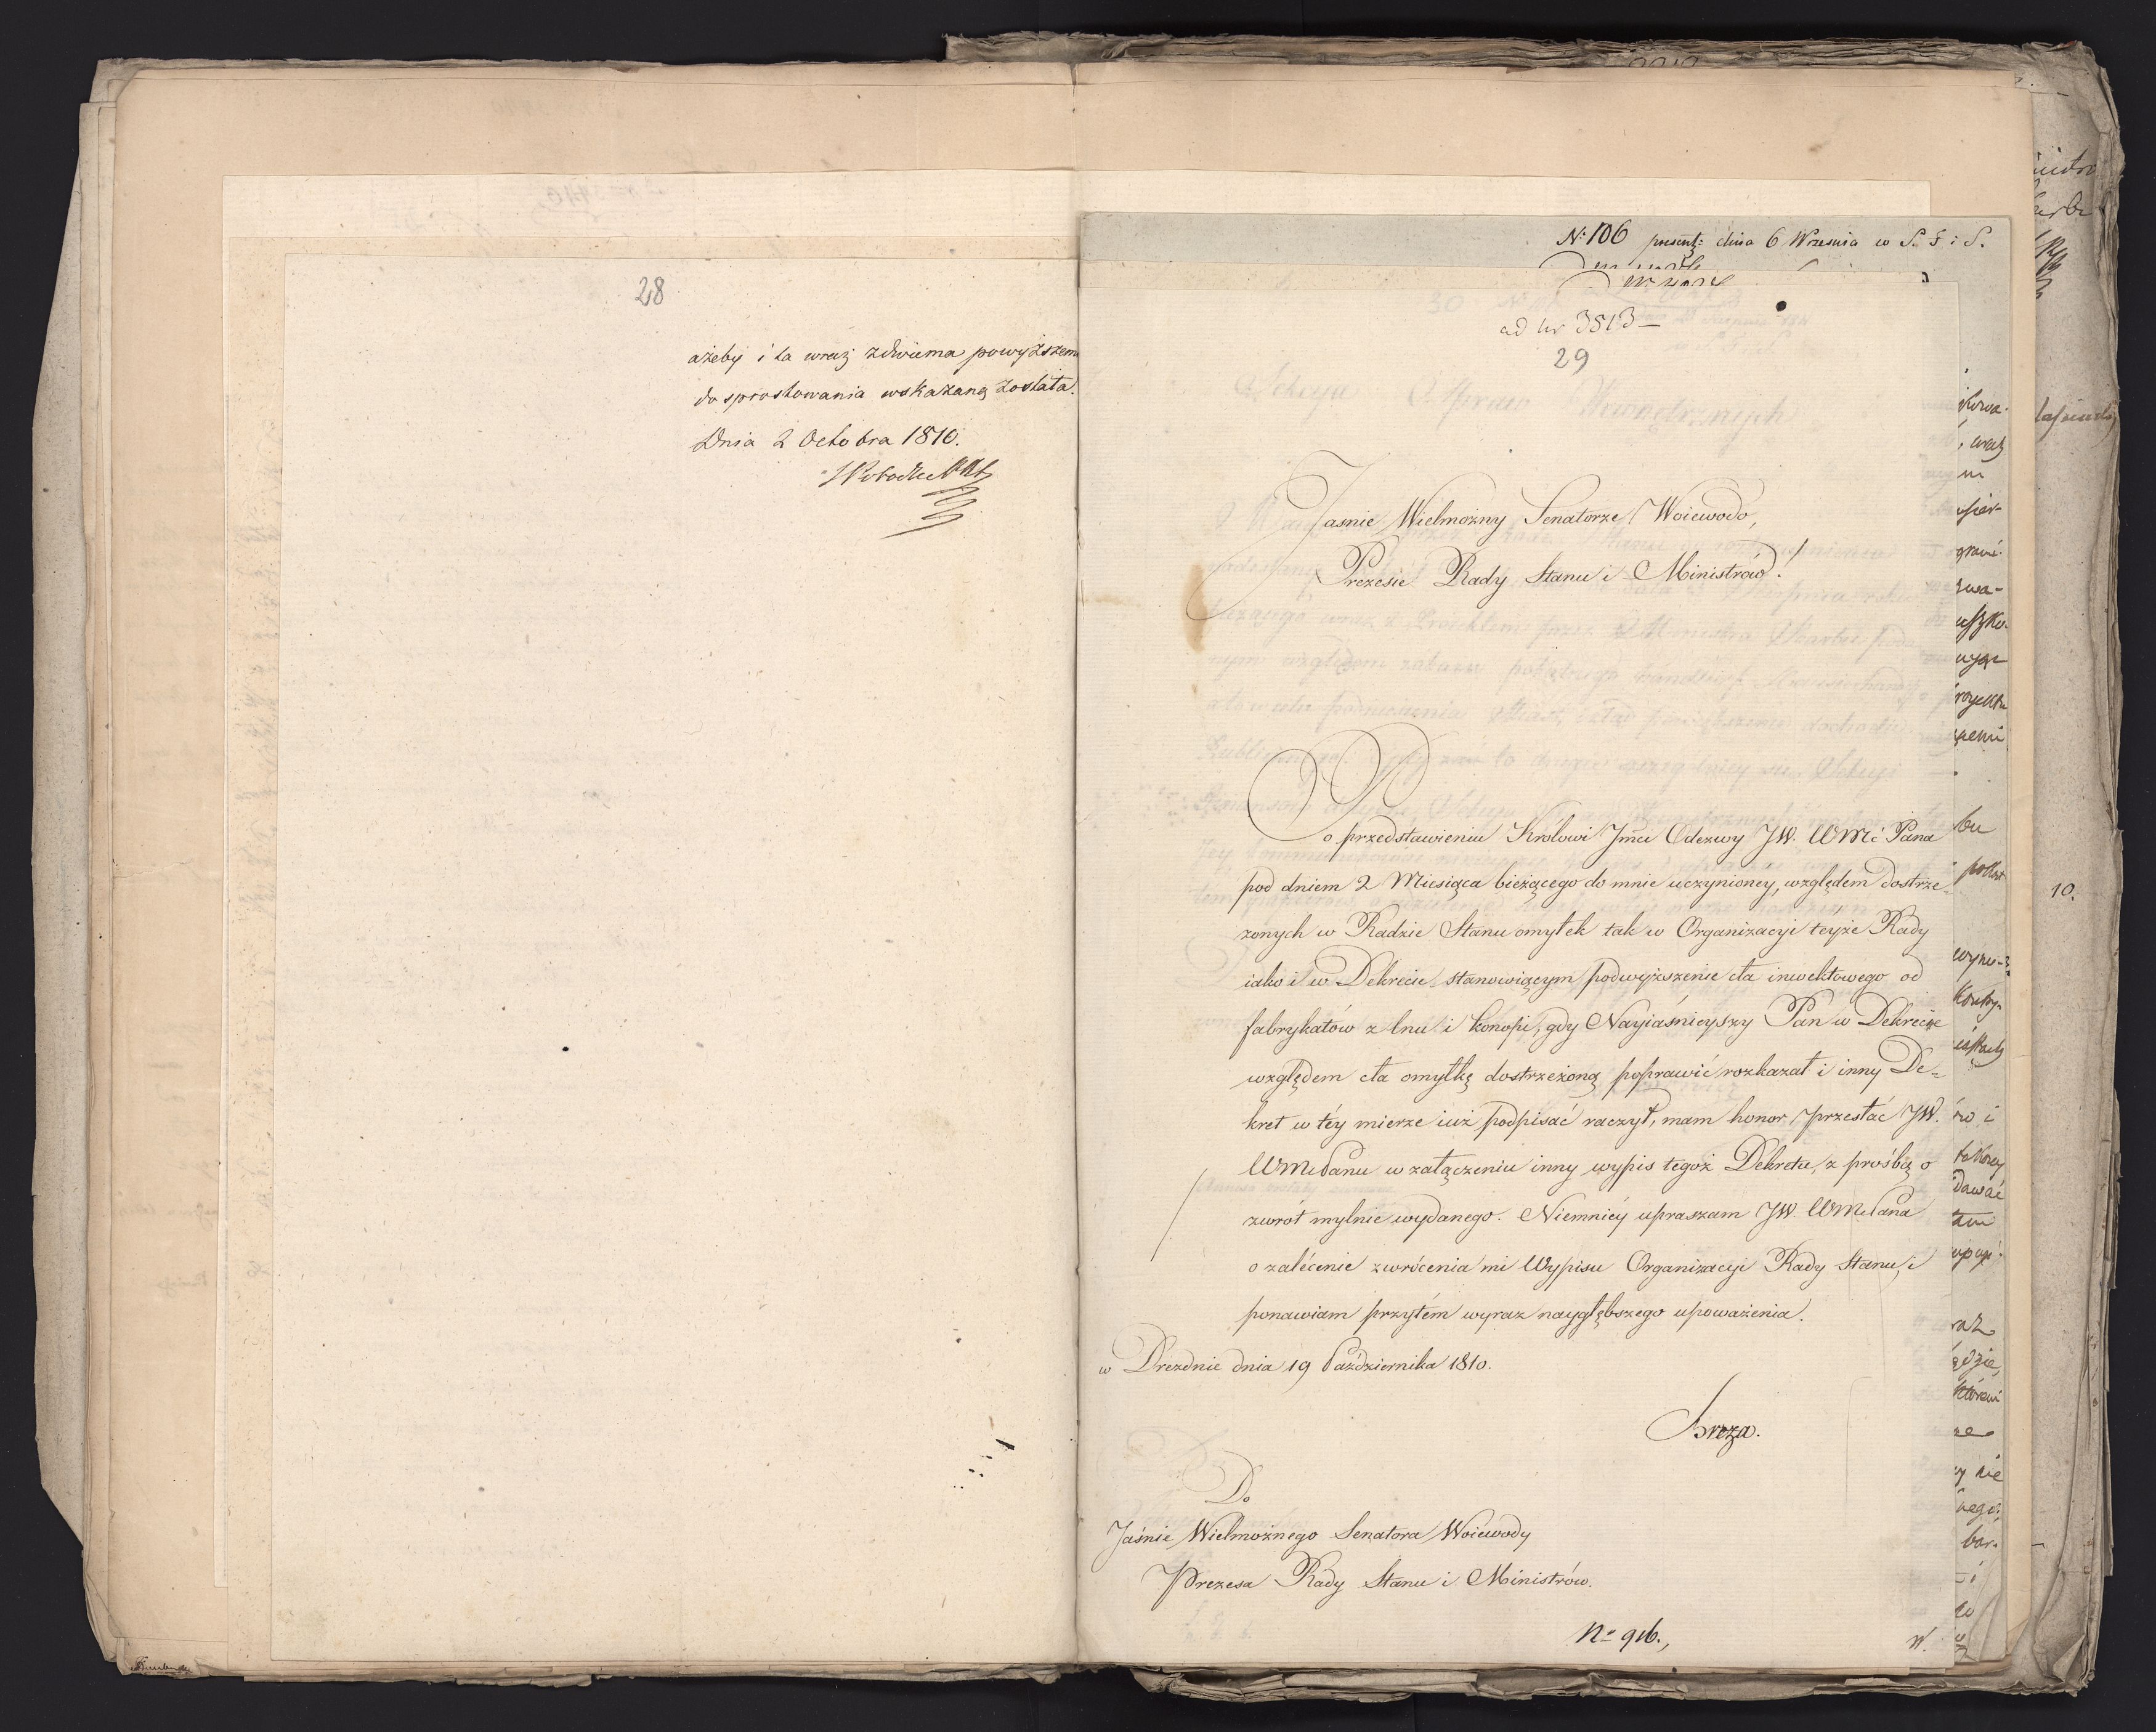 28
ażeby i ta wraz z dwiema powyższemi
do sprostowania wskazaną została.
Dnia 2 Octobra 1810.
N: 106 present: dnia 6 Września w S. S: i S.
ad Nr 3513 —
29
Jasnie Wielmożny Senatorze Woiewodo,
Prezesie Rady Stanu i Ministrów!
Po przedstawieniu Królowi Jmci Odezwy JW. WMci Pana
pod dniem 2 Miesiąca bieżącego do mnie uczynioney, względem dostrze-
żonych w Radzie Stanu omyłek tak w Organizacyi teyże Rady
iako i w Dekrecie stanowiącym podwyższenie cła inwektowego od
fabrykatów z lnu i konopi, gdy Nayiaśnieyszy Pan w Dekrecie
względem cła omyłkę dostrzeżoną poprawić rozkazał i inny De-
kret w téy mierze iuż podpisać raczył, mam honor przesłać JW.
WMPanu w załączeniu inny wypis tegoż Dekretu, z prośbą o
zwrot mylnie wydanego. Niemniéy upraszam JW. WMPana
o zalécenie zwrócenia mi Wypisu Organizacyi Rady Stanu, i
ponawiam przytém wyraz naygłębszego upoważenia.
w Dreznie dnia 19 Października 1810.
Breza.
Do
Jaśnie Wielmożnego Senatora Woiewody
Prezesa Rady Stanu i Ministrów.
No 916.
10.